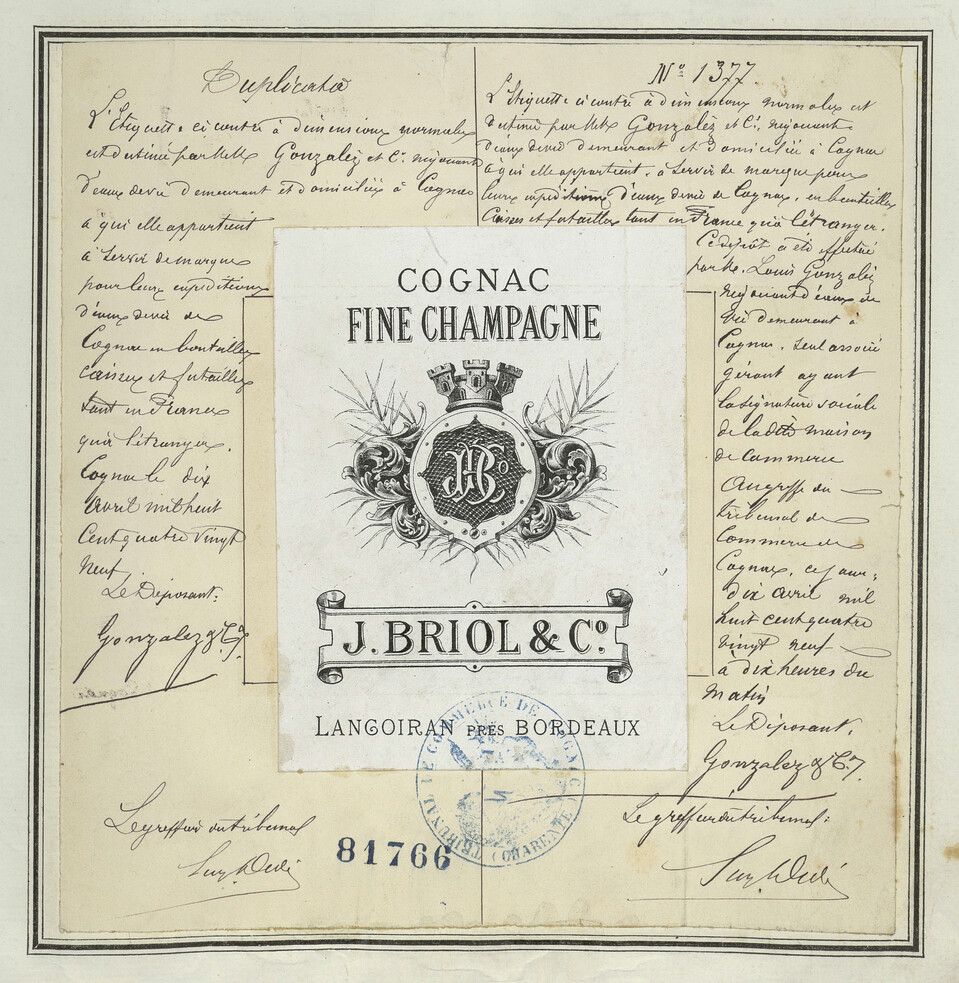 Duplicata
L'Etiquette ci contre à dimensions normales
est destinée par MM Gonzalèz et Cie. négociants
d'eaux de vie demeurant et domiciliés à Cognac
à qui elle appartient
à servir de marque
pour leurs expéditions
d'eaux de vie de
Cognac en bouteilles
caisses et futailles
tant en France
qu'à l'étranger.
Cognac le dix
avril mil huit
Cent quatre vingt
neuf.
Le Déposant:
Gonzalez & Cie
Le greffier du tribunal
No 1377.
L'Etiquette ci contre à dimensions normales est
destinée par MM Gonzalèz et Cie, négociants
d'eaux de vie demeurant et domiciliés à Cognac
à qui elle appartient, à servir de marque pour
leurs expéditions d'eaux de vie de Cognac, en bouteilles
Caisses et futailles tant en France qu'à l'étranger.
Ce dépôt a été effectué
par M. Louis Gonzalèz
négociant d'eaux de
vie demeurant à
Cognac, seul associé
gérant ayant
la signature sociale
de la dite maison
de Commerce
Au greffe du
tribunal de
Commerce de
Cognac, ce jour,
dix avril mil
huit cent quatre
vingt neuf
à dix heures du
matin
Le Déposant,
Gonzalez & Cie
Le greffier du tribunal:
COGNAC
FINE CHAMPAGNE
JBCo
J. BRIOL & Co.
LANGOIRAN PRÈS BORDEAUX
TRIBUNAL DE COMMERCE DE COGNAC (CHARENTE)
81766